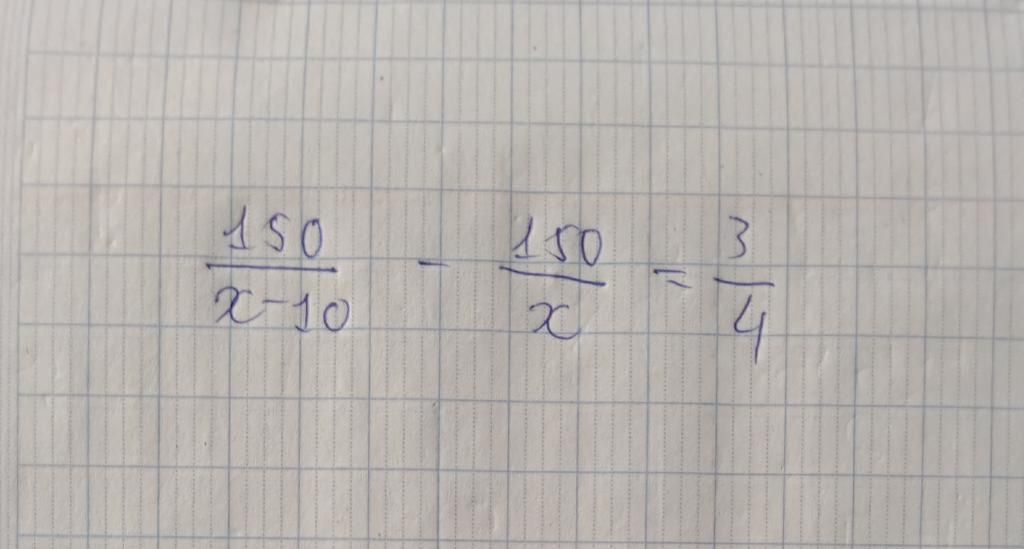 150/(x-10) - 150/x = 3/4